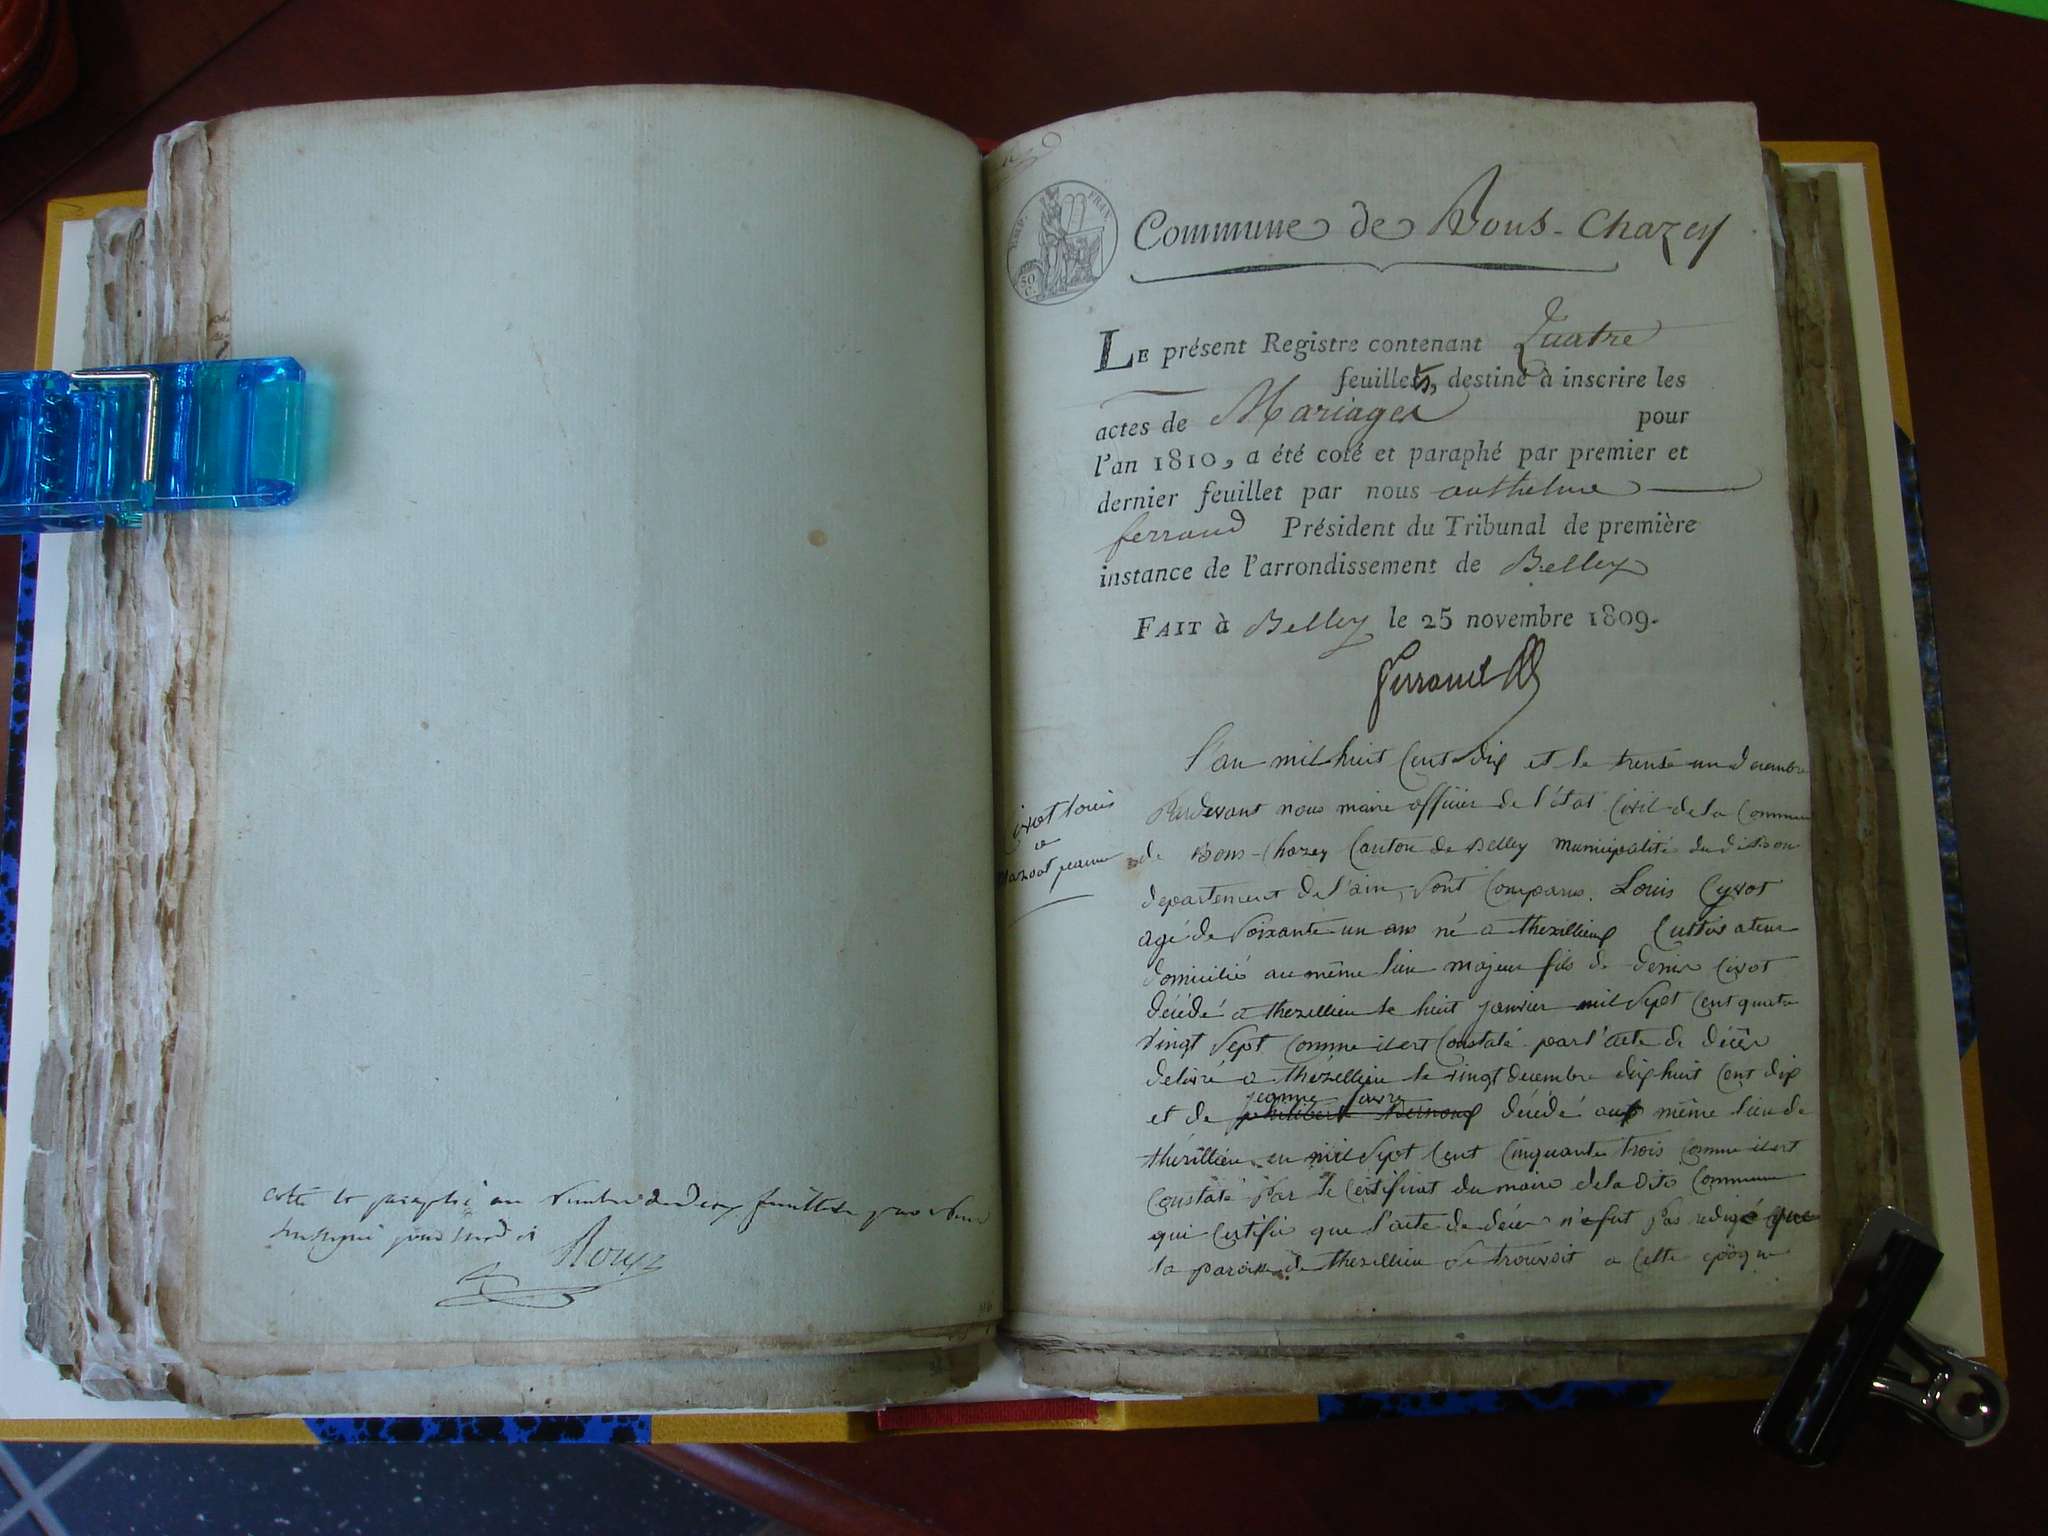 cotté et paraphé au nombre de deux feuillets par nous
soussigné
Rouyz
TIMB. FRAN.
50 C.
Commune de Bons-Chazey
LE présent Registre contenant Quatre
feuillets, destiné à inscrire les
actes de Mariages pour
l'an 1810, a été coté et paraphé par premier et
dernier feuillet par nous anthelme
ferrand Président du Tribunal de première
instance de l'arrondissement de Belley
FAIT à Belley le 25 novembre 1809.
Ferrand
L'an mil huit Cent dix et le trente un decembre
Pardevant nous maire officier de l'état Civil de la Commune
de Bons-Chazey Canton de Belley municipalité du dit Bons
departement de l'ain, sont Comparus. Louis Cyvot
agé de soixante un ans né a thezillieux Cultivateur
domicilié au même lieu majeur fils de denis Civot
décédé a thezillieu le huit janvier mil sept Cent quatre
vingt sept Comme il est Constaté par l'acte de décès
delivré a thézillieu le vingt decembre dix huit Cent dix
et de jeanne favre décédé au même lieu de
thézillieu en mil Sept Cent Cinquante trois Comme il est
Constaté Par le Certificat du maire de la dite Commune
qui Certifie que l'acte de décès n'e fut pas redigé que
la paroisse de thezillieu se trouvoit a Cette époque
Civot louis
a
jeanne